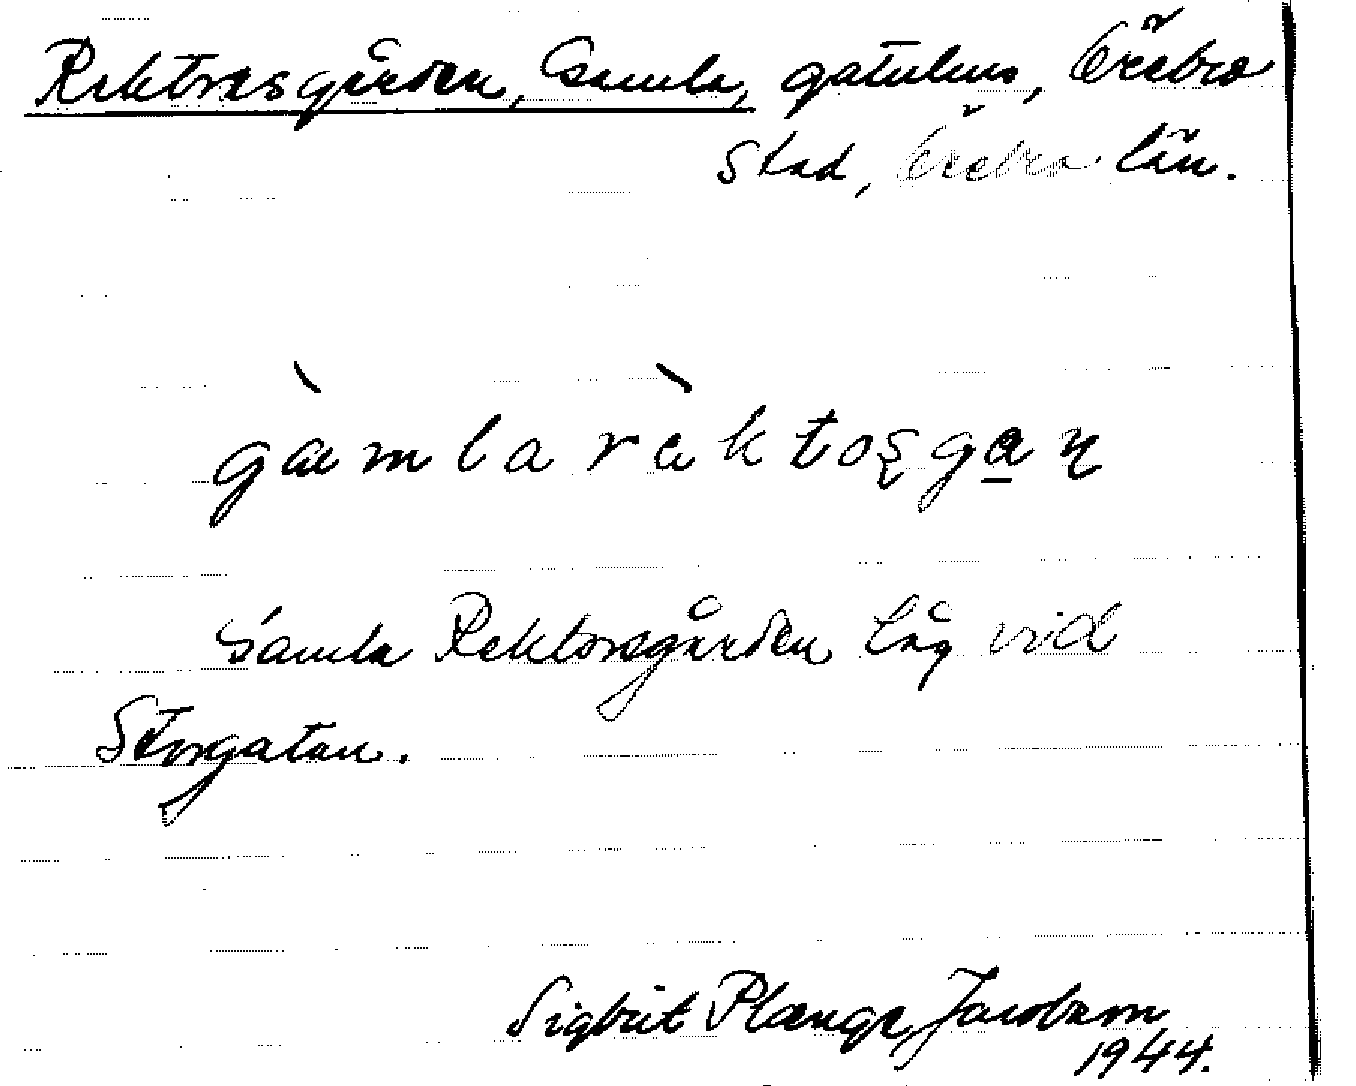 Rektorsgården, Gamla, gatuhus, Örebro
stad, Örebro län.
gàmlarὰktoʂgaɳ
Gamla Rektorsgården låg vid
Storgatan.
Sigbrit Plænge Jacobson
1944.